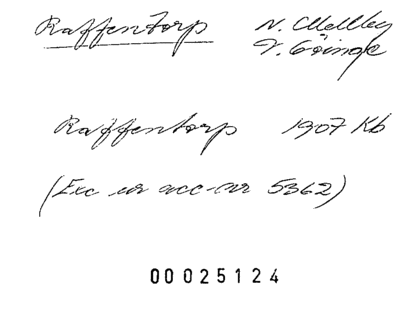 Raffentorp N. Mellby
V. Göinge
Raffentorp 1907 Kb
(Exc ur acc-nr 5362)
00025124